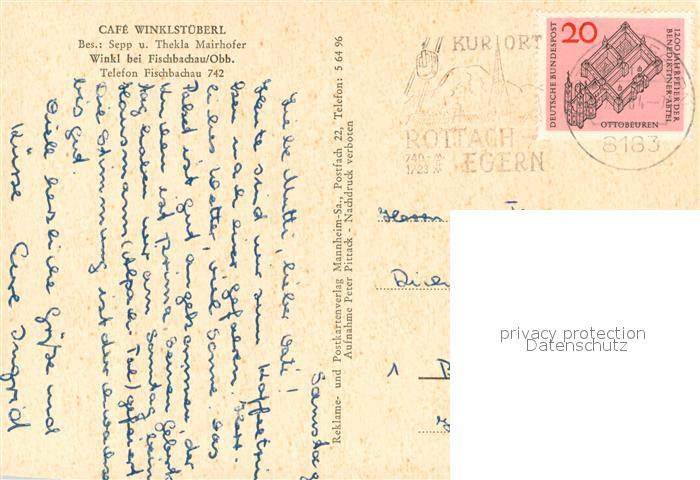 CAFÉ WINKLSTÜBERL
Bes.: Sepp u. Thekla Mairhofer
Winkl bei Fischbachau/Obb.
Telefon Fischbachau 742
Samstag
Liebe Mutti, lieber Vati!
Heute sind wir zum Kaffeetrin
ken nach hier gefahren. Herr-
liches Wetter, viel Sonne. Das
Paket ist gut angekommen, der
Kuchen ist prima. Seinen Geburts
tag haben wir am Sonntag beim
Hausmann (Alpach-Tal) gefeiert
Die Stimmung ist den
bis gut.
Viele herzliche Grüße und
Küsse Eure Ingrid
Reklame- und Postkartenverlag Mannheim-Sa., Postfach 22, Telefon: 5 64 96
Aufnahme Peter Pittack - Nachdruck verboten
KURORT
ROTTACH
EGERN
740-
1723 m
8183
20
DEUTSCHE BUNDESPOST
1200 JAHRFEIER DER
BENEDIKTINER-ABTEI
OTTOBEUREN
1
privacy protection
Datenschutz